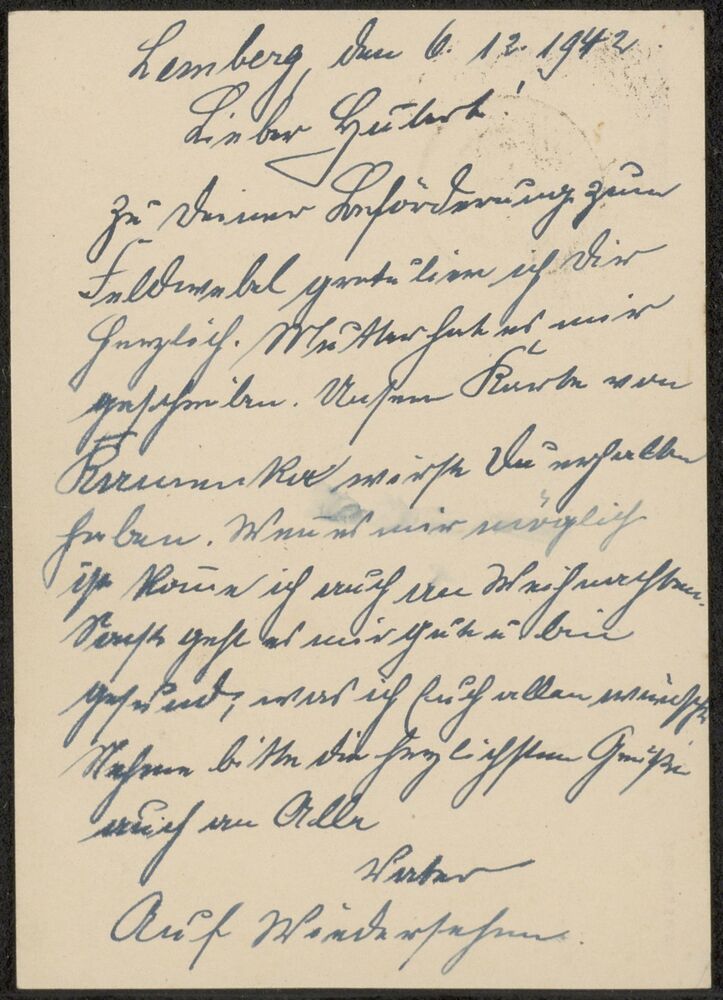 Lemberg, den 6. 12. 1942
Lieber Hubert!
Zu Deiner Beförderung zum
Feldwebel gratuliere ich Dir
herzlich. Mutter hat es mir
geschrieben. Unsere Karte von
Kamenka wirst Du erhalten
haben. Wen̄ es mir möglich
ist kom̄e ich auch an Weihnachten.
Sonst geht es mir gut u. bin
gesund, was ich Euch allen wünsche
Nehme bitte die herzlichsten Grüße
auch an Alle
Vater
Auf Wiedersehen.